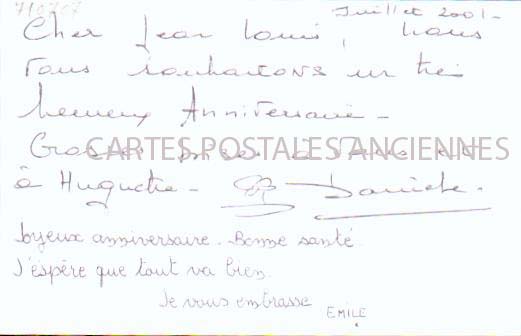 710707
Juillet 2001-
Cher Jean Louis, nous
vous souhaitons un très
heureux Anniversaire-
CARTES POSTALES ANCIENNES
Grosses à vous et
à Huguette- Danièle.
Joyeux anniversaire. Bonne santé.
J'espère que tout va bien.
Je vous embrasse
EMILE